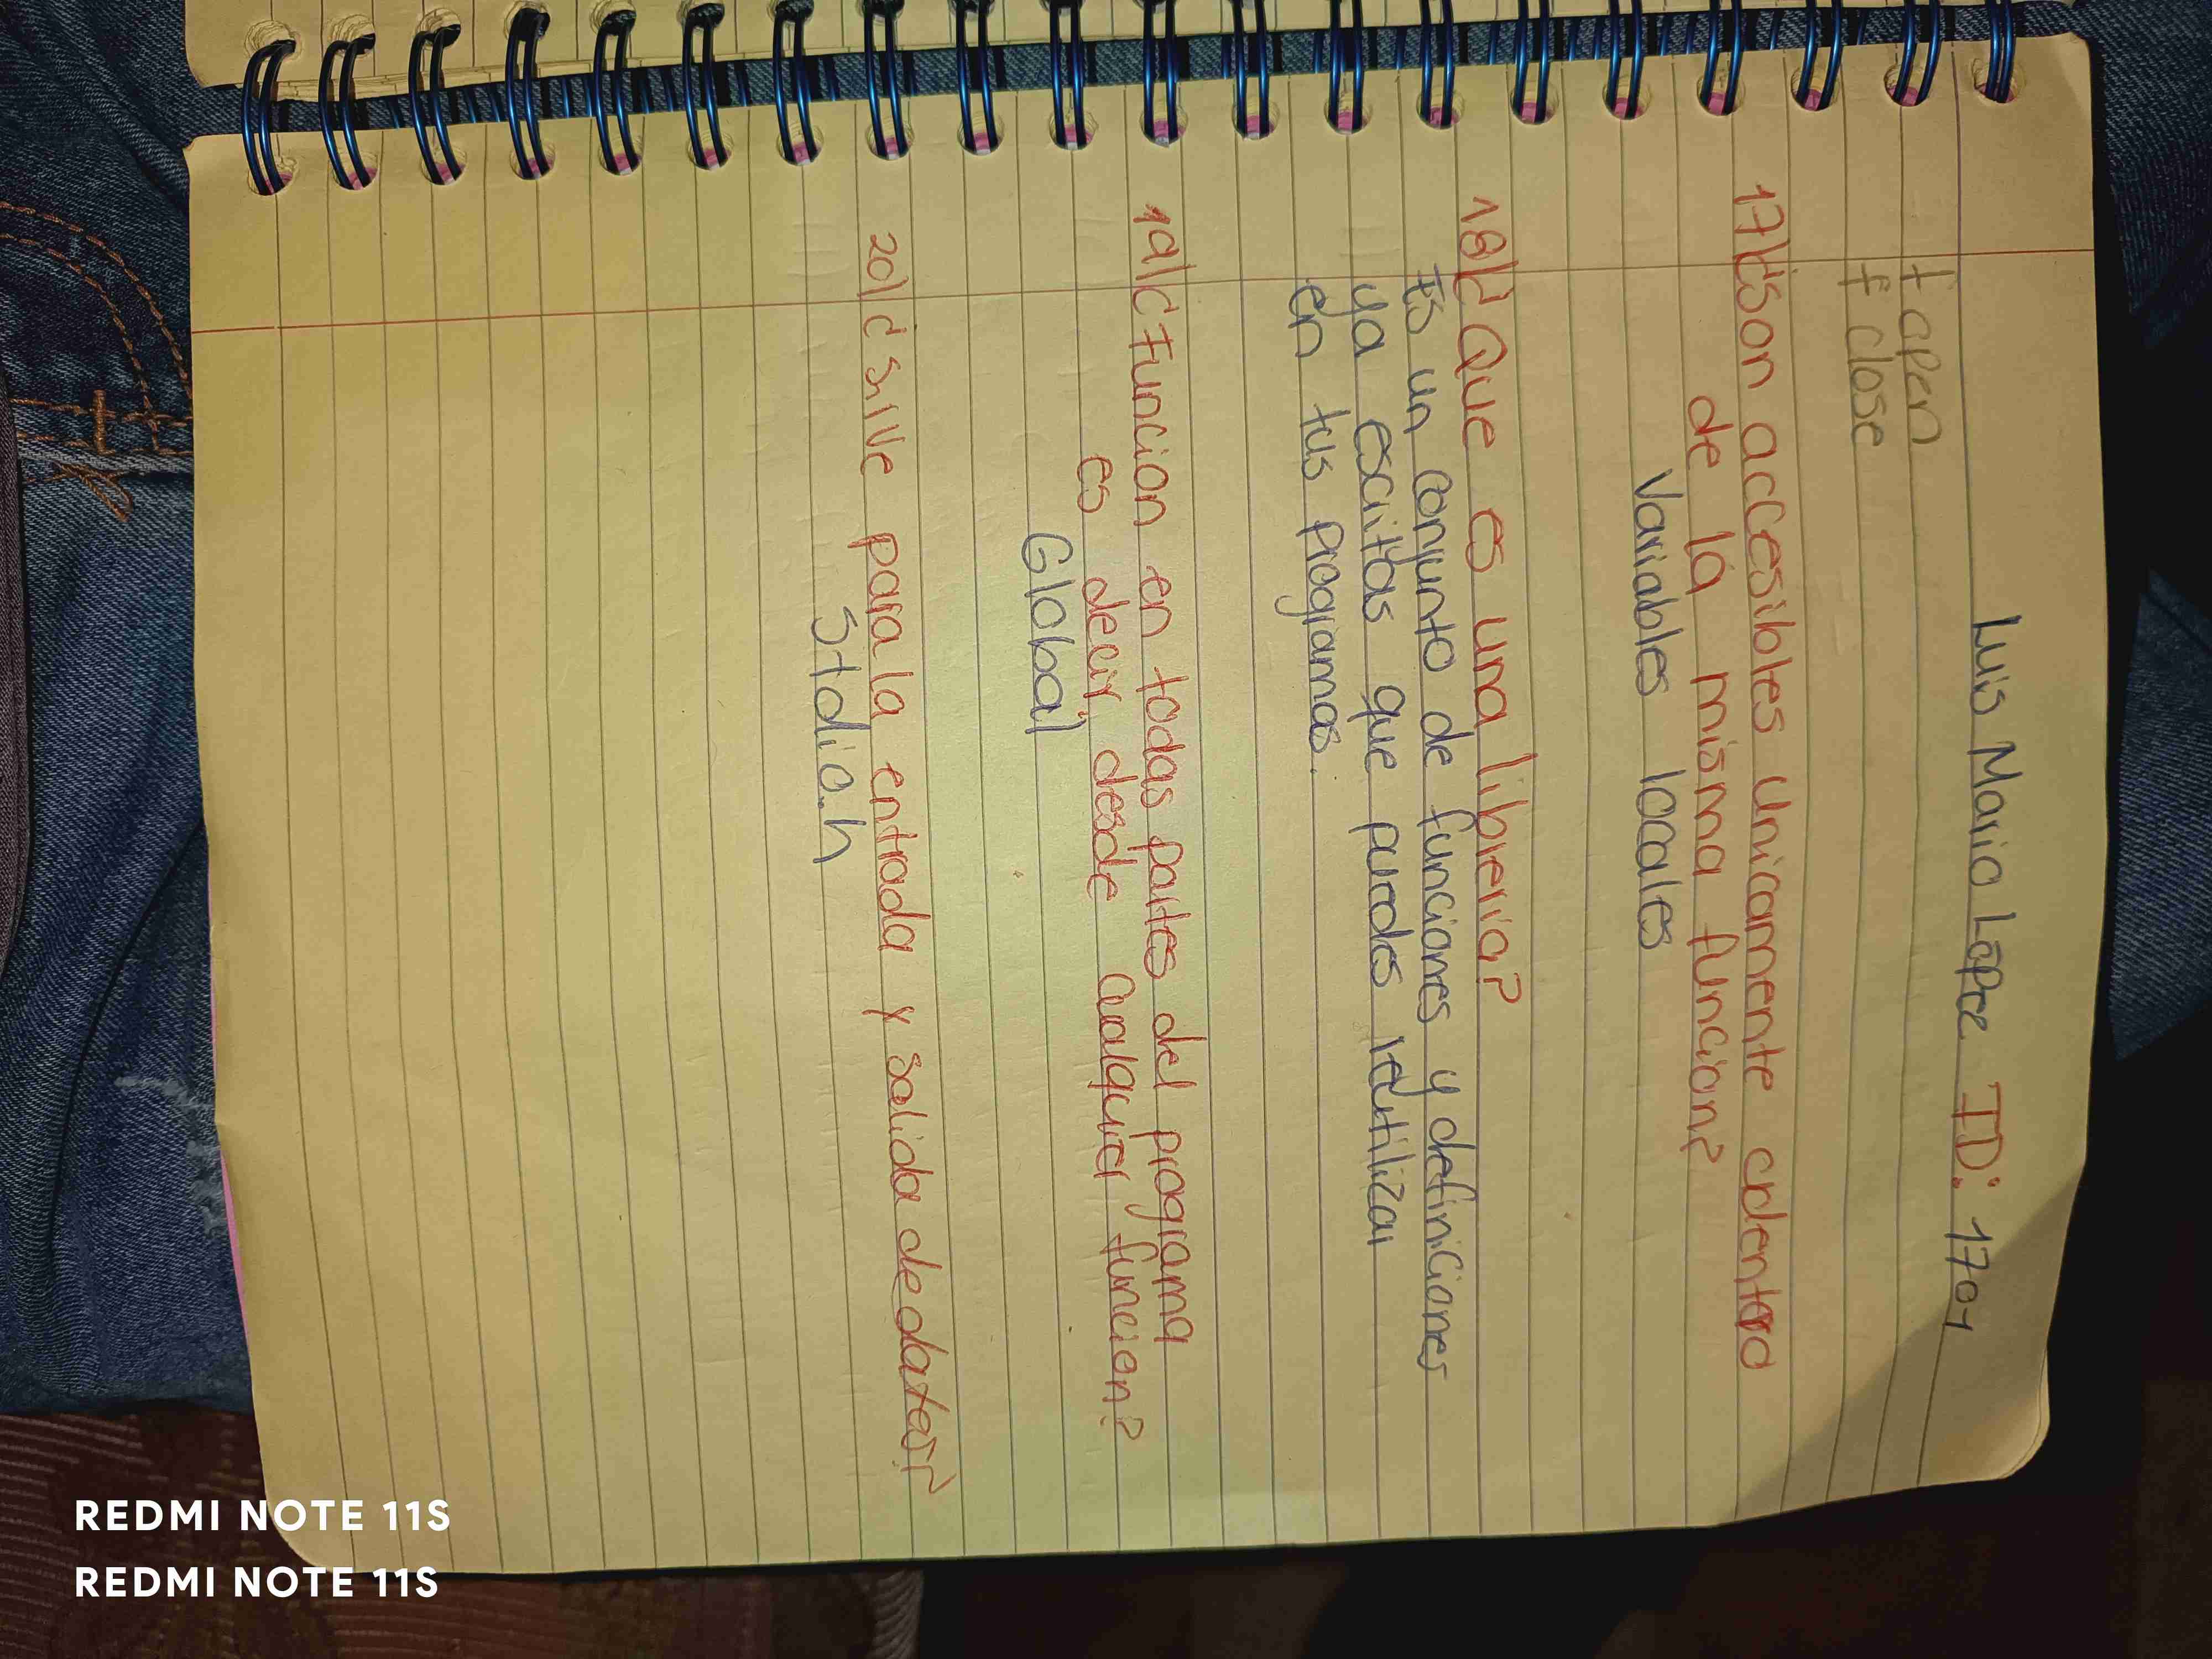 Luis Mario Lopez ID: 1701
fopen
fclose
17) ¿Son accesibles unicamente adentro
de la misma funcion?
Variables locales
18) ¿Que es una libreria?
Es un conjunto de funciones y definiciones
ya escritas que puedes reutilizar
en tus programas.
19) ¿Funcion en todas partes del programa
es decir, desde cualquier funcion?
Global
20) ¿Sirve para la entrada y salida de datos?
Stdio.h
REDMI NOTE 11S
REDMI NOTE 11S